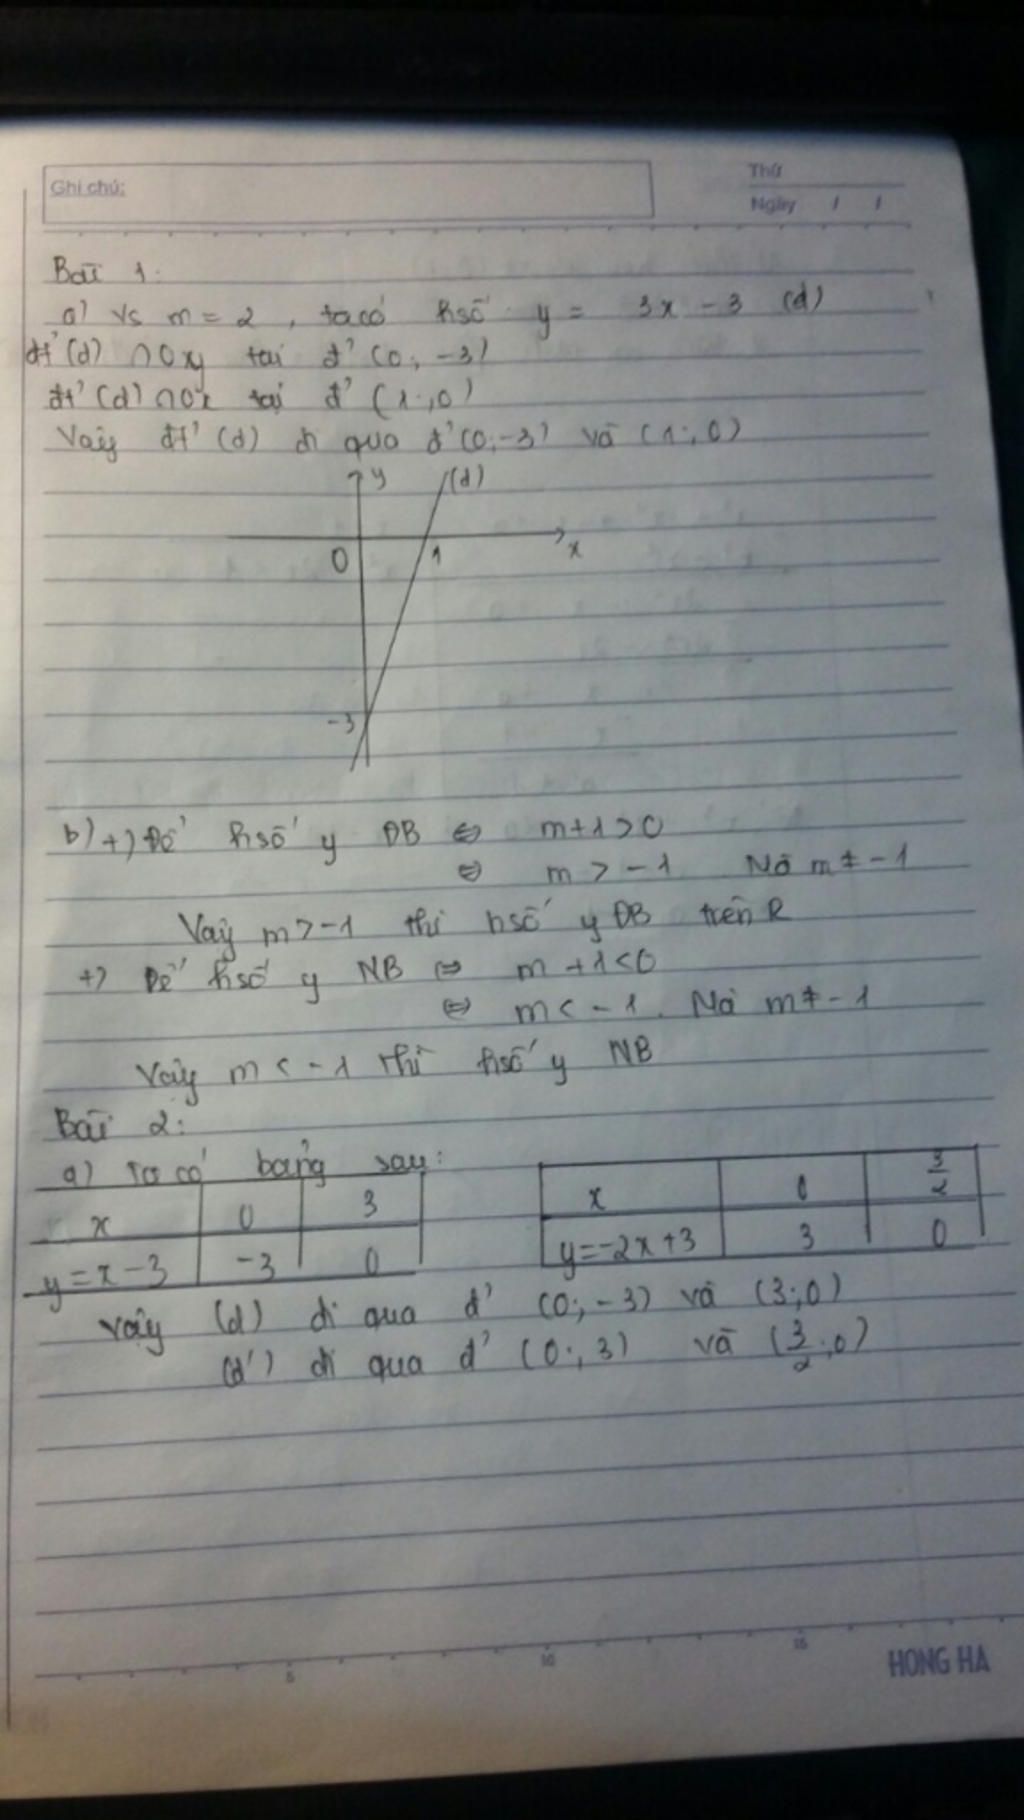 Ghi chú:
Thứ
Ngày / /
Bài 1:
a) Vs m = 2, ta có hsố y = 3x - 3 (d)
đt' (d) ∩ Oxy tại đ' (0; -3)
đt' (d) ∩ Ox tại đ' (1; 0)
Vậy đt' (d) đi qua đ' (0; -3) và (1; 0)
y (d)
0 1 x
-3
b) +) Để hsố y ĐB ⇔ m+1>0
⇔ m > -1 Mà m ≠ -1
Vậy m > -1 thì hsố y ĐB trên R
+) Để hsố y NB ⇔ m+1<0
⇔ m < -1. Mà m ≠ -1
Vậy m < -1 thì hsố y NB
Bài 2:
a) Ta có bảng sau:
x 0 3
y = x - 3 -3 0
x 0 3/2
y = -2x+3 3 0
Vậy (d) đi qua đ' (0; -3) và (3; 0)
(d') đi qua đ' (0; 3) và (3/2; 0)
5 10 15
HONG HA